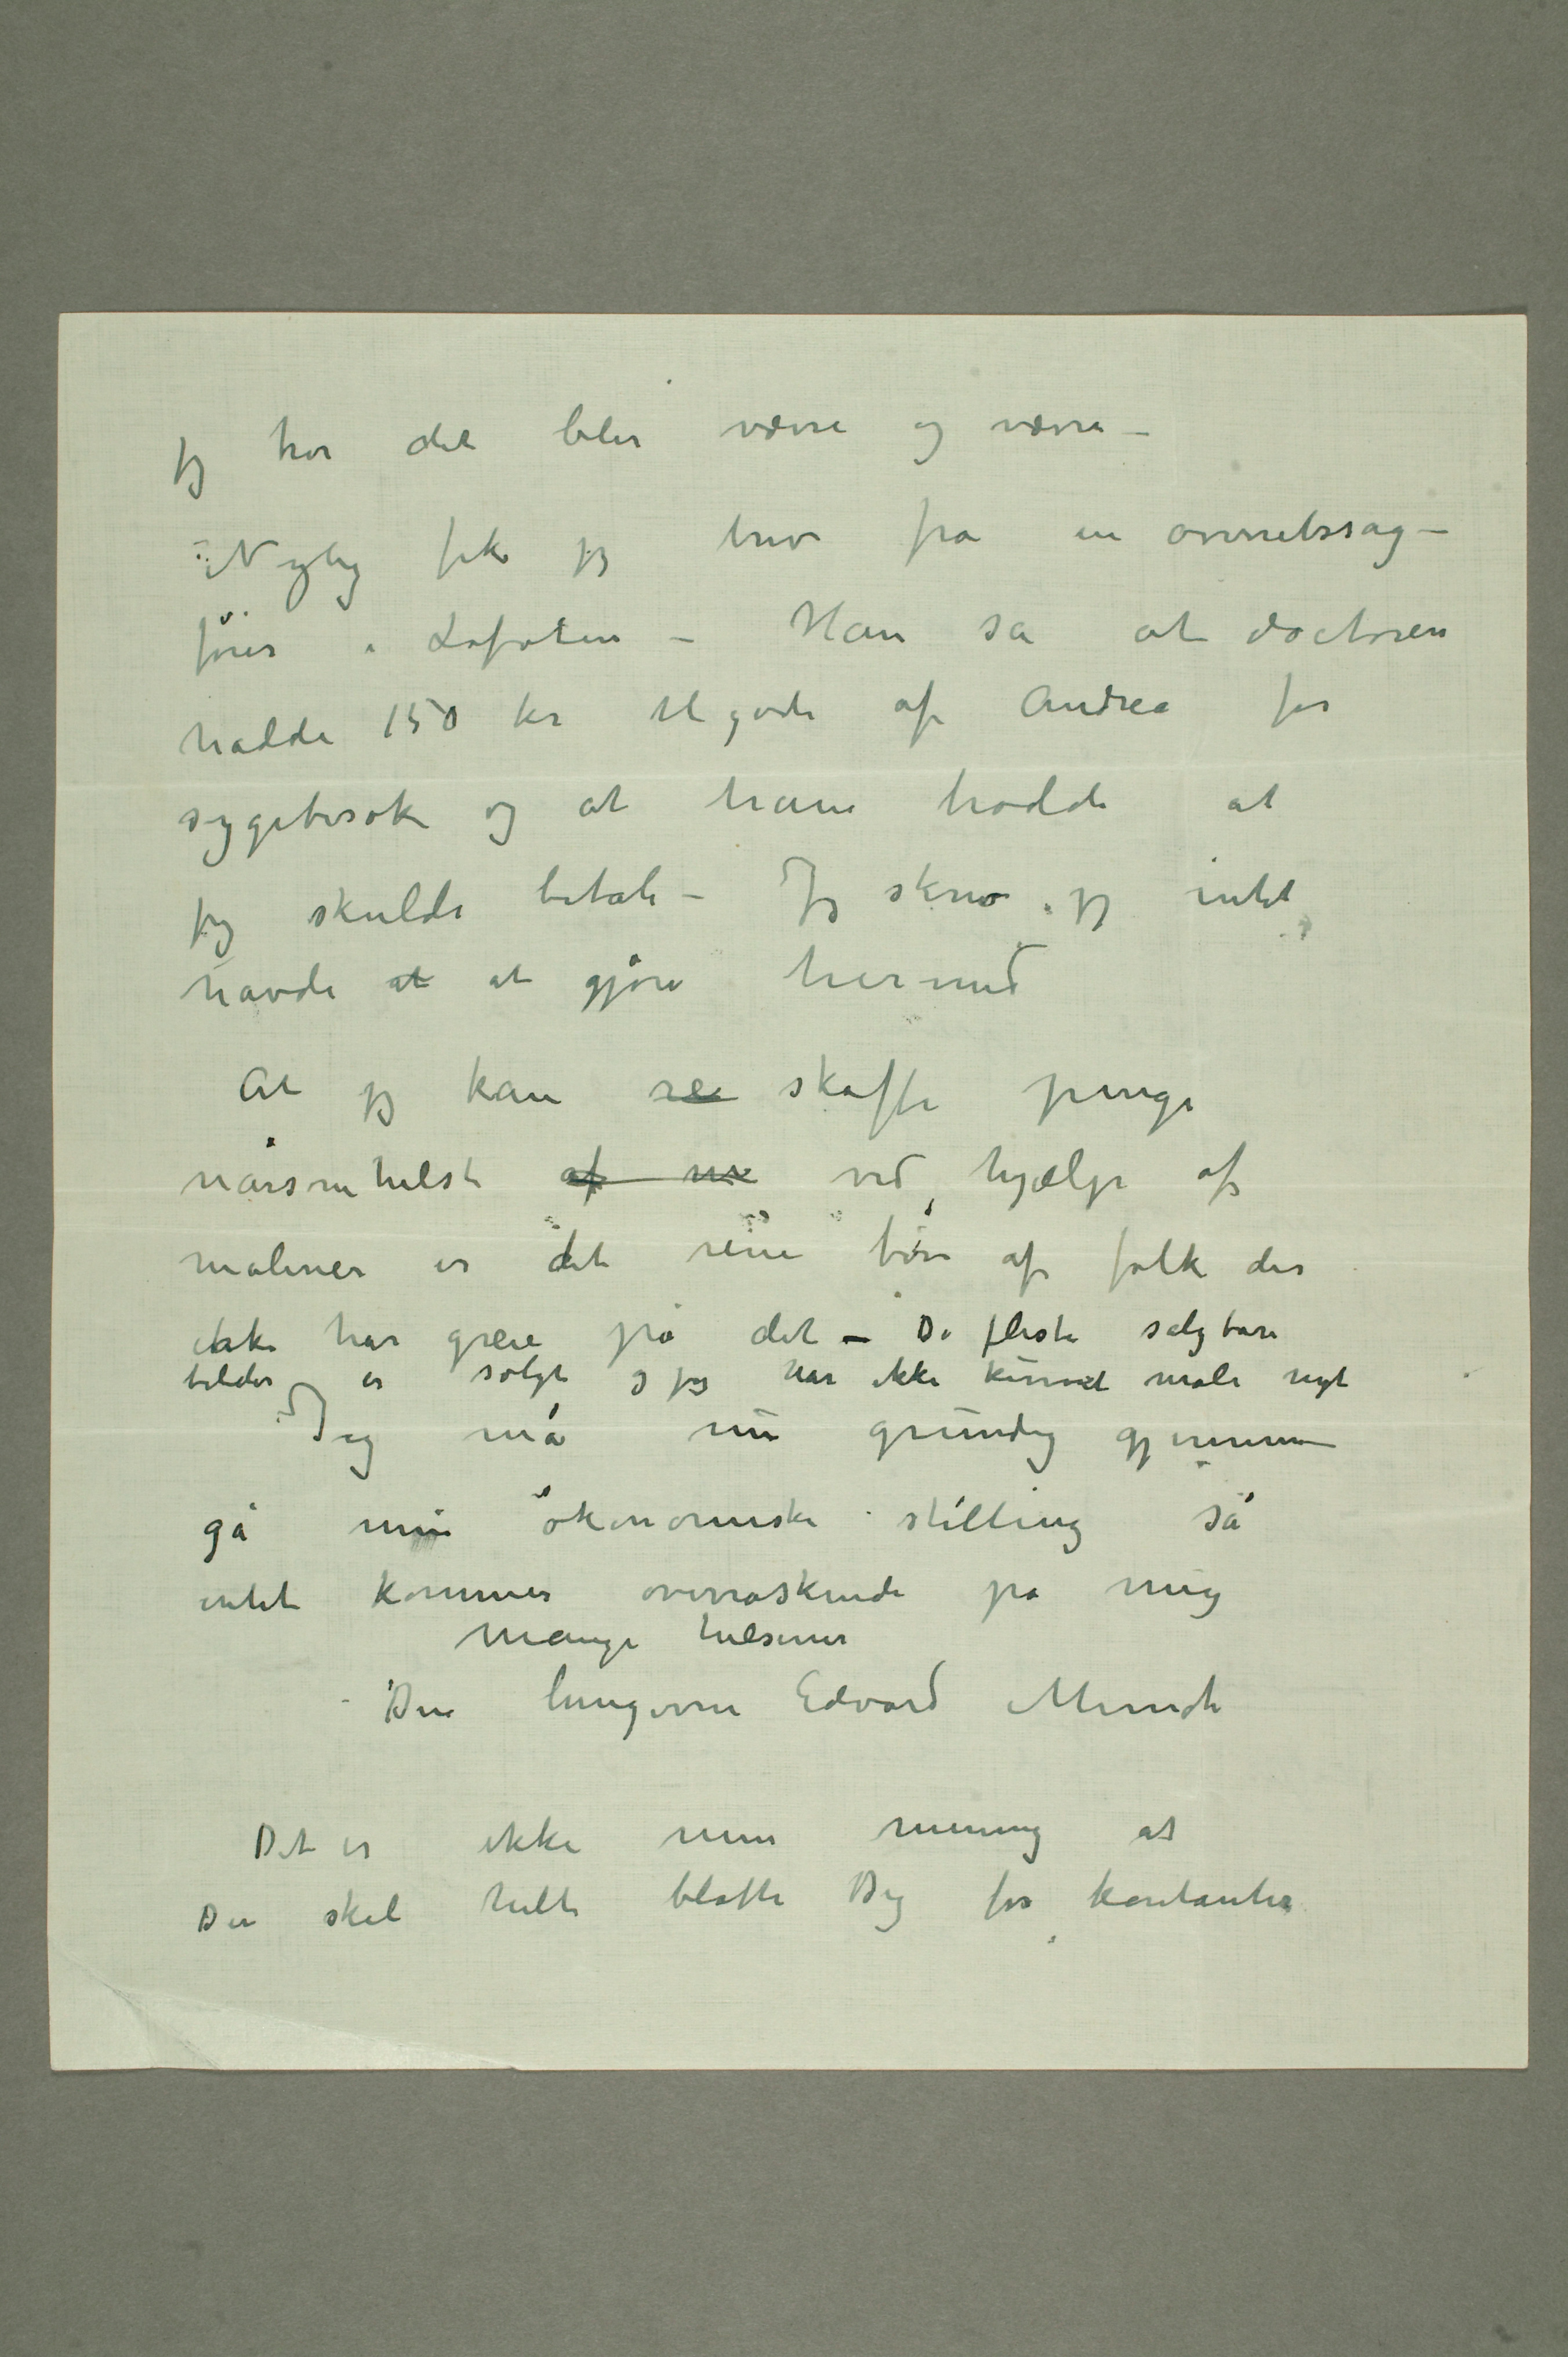 jeg tror det blir værre og værre –
Nylig fik jeg brev fra en overretssag-
fører i Lofoten – Han sa at doctoren
hadde 150 kr tilgode af Andrea for
sygebesøk og at han trodde at
jeg skulde betale – Jeg skrev jeg intet
havde at at gjøre hermed
At jeg kan se skaffe penge
nårsomhelst af ved hjælp af
malerier er det rene tøv af folk der
ikke har greie på det – De fleste salgbare
bilder er solgt og jeg har ikke kunnet male nyt
Jeg må nu grundig gjennem
gå min økonomiske stilling så
intet kommer overraskende på mig
Mange hilsener
Din hengivne Edvard Munch
Det er ikke min mening at
Du skal helt blotte Dig for kontanter